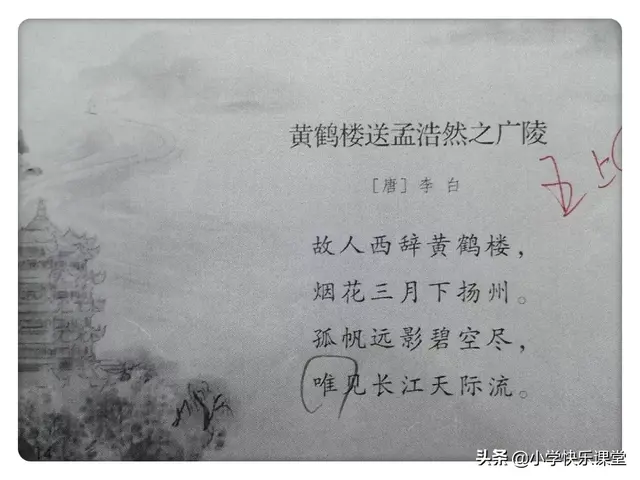 黄鹤楼送孟浩然之广陵
［唐］李白
五上
故人西辞黄鹤楼，
烟花三月下扬州。
孤帆远影碧空尽，
唯见长江天际流。
头条 @小学快乐课堂